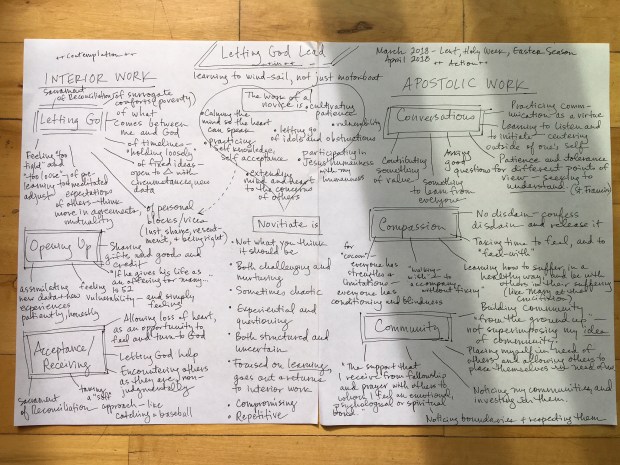 ++ Contemplation ++
Letting God Lead
March 2018 - Lent, Holy Week, Easter Season
April 2018
++ Action ++
learning to wind-sail, not just motorboat
INTERIOR WORK
Sacrament
of Reconciliation
of surrogate
comforts (poverty)
Letting Go
of what
comes between
me and God
of timelines -
holding loosely
of fixed ideas -
open to
circumstances, new
data
Feeling "too
tight" and
"too loose" -
learning to
adjust
of pre-
meditated
expectations
of others - think
more in agreements,
mutuality
of personal
blocks/vice
(lust, shame, resent-
ment, + being right)
Opening Up
Sharing
gifts and goods and
credit
"If he gives his life as
an offering for many..."
Is 53
feeling
vulnerability - and simply
feeling!
assimilating
new data +
experiences
patiently, honestly
Acceptance/
Receiving
Allowing loss of heart,
as an opportunity to
feel and turn to God
Letting God help
Encountering others
as they are, non-
judgmentally
taking
a "soft"
approach - like
catching a baseball
Sacrament
of Reconciliation
The work of a
novice is
Calming the
mind so the heart
can speak
practicing
self knowledge,
self acceptance
extending
mind and heart
to the concerns
of others
cultivating
patience
vulnerability
letting go
of idols and obstructions
participating in
Jesus' humanness
with my
humanness
Novitiate is
• Not what you think
it should be
• Both challenging and
nurturing
• Sometimes chaotic
• Experiential and
questioning
• Both structured and
uncertain
• Focused on learning,
goes out + returns
to interior work
• Compromising
• Repetitive
APOSTOLIC WORK
Conversations
Practicing comm-
unication as a virtue
Learning to listen and
to initiate - centering
outside of one's self
Patience and tolerance
for different points of
view - seeking to
understand (St. Francis)
Asking
good
questions
Contributing
something
of value
something
to learn from
everyone
Compassion
No disdain - confess
disdain and release it
Taking time to feel, and to
"feel-with"
Learning how to suffer in a
healthy way, but be with
others in their suffering
(like Mary at the
crucifixion)
for
everyone has
strengths +
limitations -
everyone has
conditioning and blindness
to
accompany
without fixing
Community
Building community
from the ground-up -
not superimposing my idea
of community
Placing myself in need of
others and allowing others to
place themselves in need of me
Noticing my communities, and
investing in them.
Noticing boundaries + respecting them
"The support that
I receive from fellowship
and prayer with others to
whom I feel an emotional,
psychological or spiritual
bond"